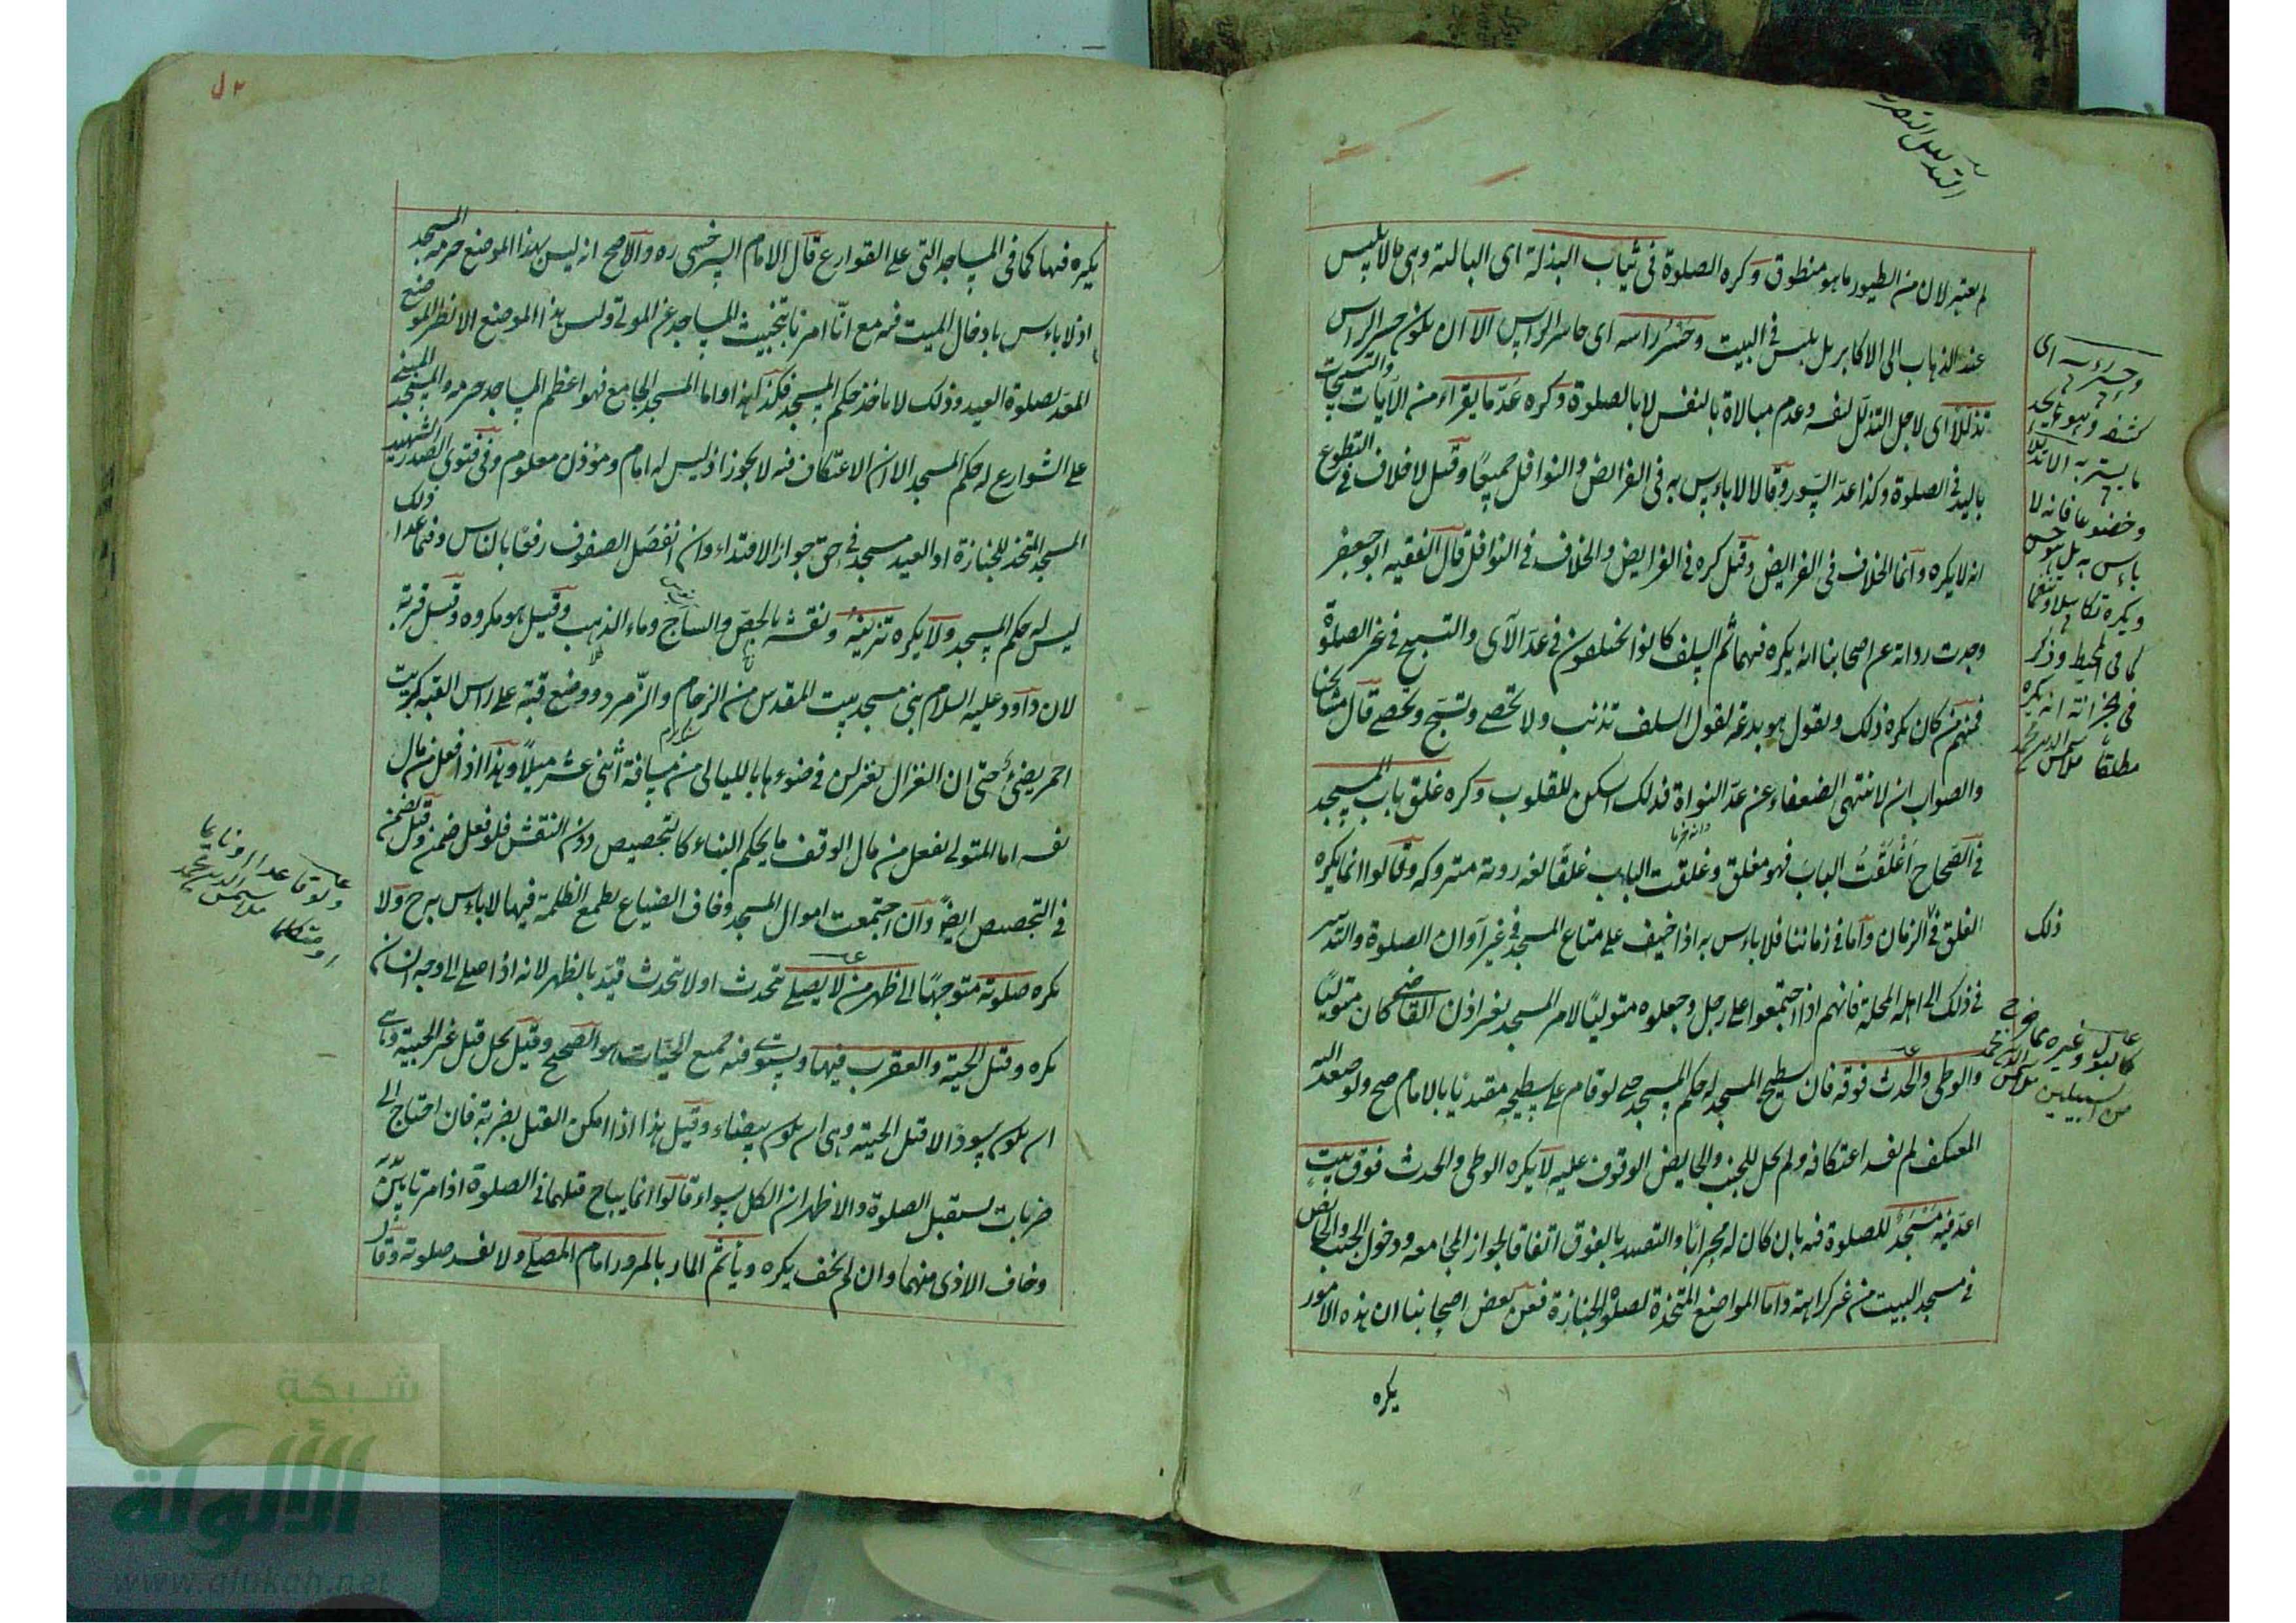 لم يعتبر لان من الطيور ما هو منطوق وكره الصلوة فى ثياب البذلة اى البالية وهى ما لا يلبس
عند الذهاب الى الاكابر بل يلبس فى البيت وحسر راسه اى حاسر الراس الا ان يكون حسر الراس
تذللا اى لاجل التذلل لنفسه وعدم مبالاة بالنفس لا بالصلوة وكره عد ما يقراء من الايات والتسبيحات
باليد فى الصلوة وكذا عد السور وقالا لا باءس به فى الفرائض والنوافل جميعا وقيل لا خلاف فى التطوع
انه لا يكره وانما الخلاف فى الفرايض وقيل كره فى الفرايض والخلاف فى النوافل قال الفقيه ابو جعفر
وجدت رواية عن اصحابنا انه يكره فيهما ثم السلف كانوا يختلفون فى عد الآى والتسبيح فى غير الصلوة
فمنهم من كان يكره ذلك ويقول هو بدعة لقول السلف تذنب ولا تحصى وتسبح وتحصى قال مشايخنا
والصواب ان لا ينتهى الضعفاء عن عد النواة فذلك اسكن للقلوب وكره غلق باب المسجد
دانه خرما
فى الصحاح اغلقت الباب فهو مغلق وغلقت الباب غلقا لغة ردية متروكة وقالوا انما يكره
الغلق فى الزمان واما فى زماننا فلا باءس به اذا خيف على متاع المسجد فى غير آوان الصلوة والتدبير
فى ذلك الى اهل المحلة فانهم اذا اجتمعوا على رجل وجعلوه متوليا لامر المسجد بغير اذن القاضى كان متوليا
والوطى والحدث فوقه فان سطح المسجد له حكم المسجد حتى لو قام على سطحه مقتديا بالامام صح ولو صعد اليه
المعتكف لم يفسد اعتكافه ولم يحل للجنب والحايض الوقوف عليه لا يكره الوطى والحدث فوق بيت
اعد فيه مسجد للصلوة فيه بان كان له محرابا والتقييد بالفوق اتفاقا لجواز المجامعة ودخول الجنب والحايض
فى مسجد البيت من غير كراهة واما المواضع المتخذة لصلوة الجنازة فعن بعض اصحابنا ان هذه الامور
يكره
وحسر رءسه اى
كشفه وهو يجد
ما يستر به الا تذللا
وخضوعا فانه لا
باءس به بل هو حسن
ويكره تكاسلا
كما فى المحيط وذكر
فى الخزانة انه يكره
مطلقا ملا شمس الدين محمد
ذلك
كالبول وغيره مما خرج
من السبيلين ملا شمس الدين محمد
يكره فيها كما فى المساجد التى على القوارع قال الامام السرخسى ره والاصح انه ليس لهذا الموضع حرمة المسجد
اذ لا باءس بادخال الميت فيه مع انا امرنا بتجنيب المساجد عن الموتى وليس هذا الموضع الا نظير الموضع
المعد لصلوة العيد وذلك لا ياخذ حكم المسجد فكذا هذا واما المسجد الجامع فهو اعظم المساجد حرمة والمسجد المبنى
على الشوارع له حكم المسجد الا ان الاعتكاف فيه لا يجوز اذ ليس له امام ومؤذن معلوم وفى فتوى الصدر الشهيد
المسجد المتخذ للجنازة او العيد مسجد فى حق جواز الاقتداء وان انفصل الصفوف رفقا بالناس وفيما عدا ذلك
ليس له حكم المسجد ولا يكره تزيينه ونقشه بالجص والساج وماء الذهب وقيل هو مكروه وقيل قربة
لان داود عليه السلام بنى مسجد بيت المقدس من الرخام والزمرد ووضع قبة على راس القبة كبريت
احمر يضئ حتى ان الغزال يغزلن فى ضوءها بالليالى من مسافة اثنى عشر ميلا وهذا اذا فعل من مال
نفسه اما المتولى يفعل من مال الوقف ما يحكم البناء كالتجصيص دون النقش فلو فعل ضمن وقيل يضمن
فى التجصيص ايضا وان اجتمعت اموال المسجد وخاف الضياع بطمع الظلمة فيها لا باءس به ح ولا
يكره صلوته متوجها الى ظهر من لا يصلى يتحدث او لا يتحدث قيد بالظهر لانه اذا صلى الى وجه انسان
يكره وقتل الحية والعقرب فيها ويستوى فيه جميع الحيات هو الصحيح وقيل يحل قتل غير الجنية وهى
ان يكون سودا لا قتل الجنية وهى ان يكون بيضاء وقيل هذا اذا امكن القتل بضربة فان احتاج الى
ضربات يستقبل الصلوة والاظهر ان الكل سواء قالوا انما يباح قتلهما فى الصلوة اذا مرتا بين يديه
وخاف الاذى منهما وان لم يخف يكره ويأثم المار بالمرور امام المصلى ولا يفسد صلوته وقال
شبكة
الألوكة
www.alukah.net